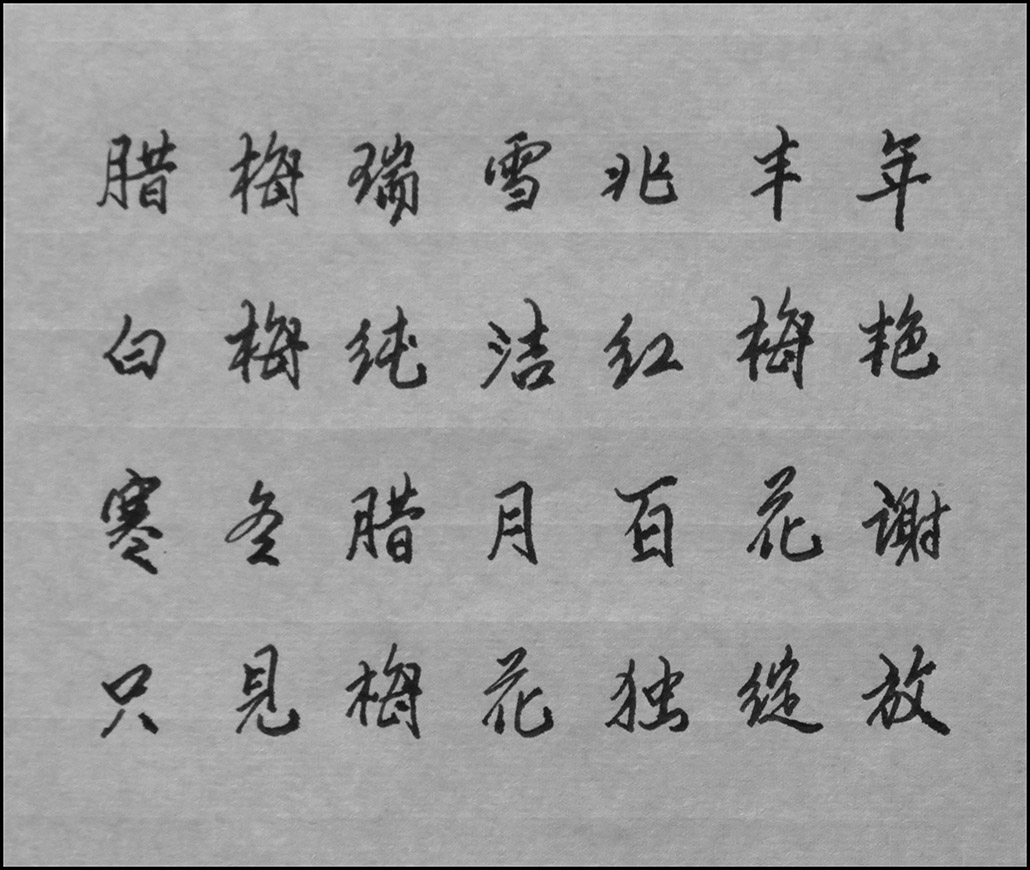 腊梅瑞雪兆丰年
白梅纯洁红梅艳
寒冬腊月百花谢
只见梅花独绽放